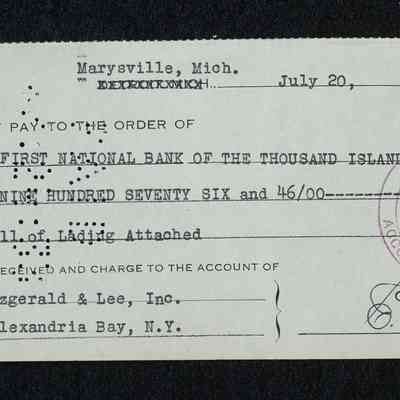 Marysville, Mich.
July 20,
PAY TO THE ORDER OF
FIRST NATIONAL BANK OF THE THOUSAND ISLAND
NINE HUNDRED SEVENTY SIX and 46/00----------
ll of Lading Attached
RECEIVED AND CHARGE TO THE ACCOUNT OF
zgerald & Lee, Inc.
lexandria Bay, N.Y.